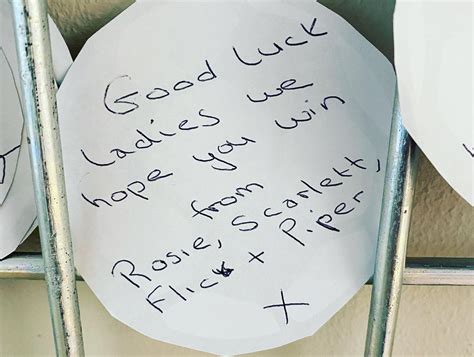 Good Luck
Ladies we
hope you win
from
Rosie, Scarlett,
Flick + Piper
x